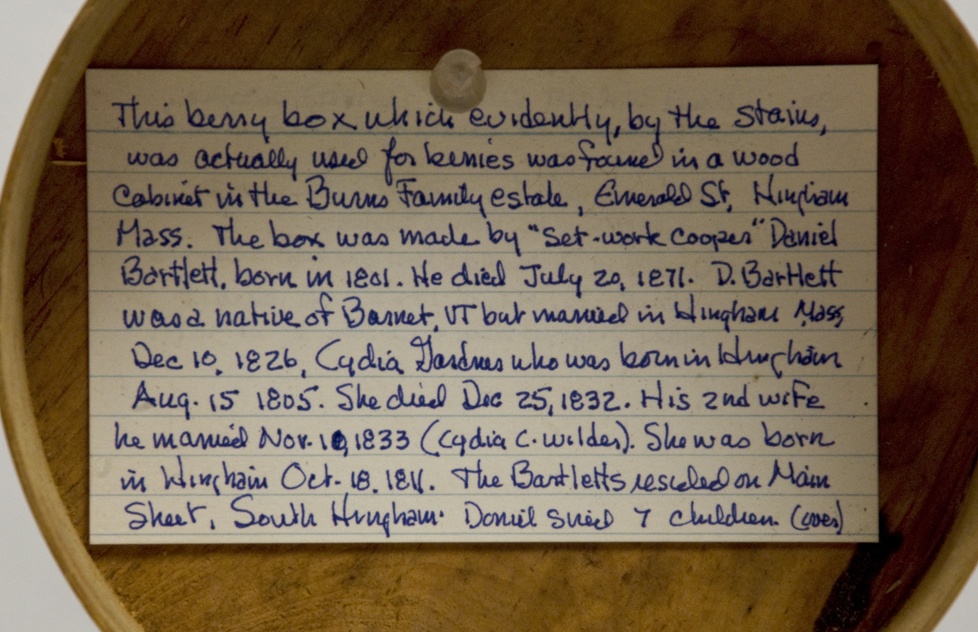 This berry box which evidently, by the stains,
was actually used for berries was found in a wood
cabinet in the Burns Family estate, Emerald St, Hingham
Mass. The box was made by "Set-work Cooper" Daniel
Bartlett, born in 1801. He died July 20, 1871. D. Bartlett
was a native of Barnet, VT but married in Hingham Mass,
Dec 10, 1826, Lydia Gardner who was born in Hingham
Aug. 15 1805. She died Dec 25, 1832. His 2nd wife
he married Nov. 10, 1833 (Lydia C. Wilder). She was born
in Hingham Oct. 18, 1811. The Bartletts resided on Main
Street, South Hingham. Daniel sired 7 children. (over)